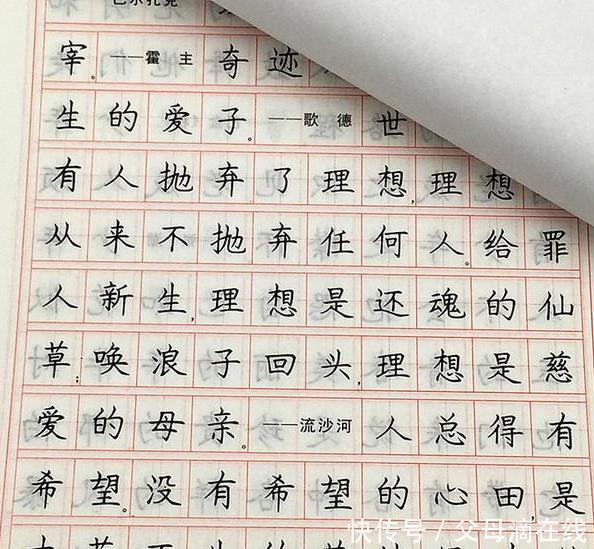 宰。——霍 主 奇 迹
生 的 爱 子。——歌 德 世
有 人 抛 弃 了 理 想，理 想
从 来 不 抛 弃 任 何 人。给 罪
人 新 生，理 想 是 还 魂 的 仙
草；唤 浪 子 回 头，理 想 是 慈
爱 的 母 亲。——流沙河 人 总 得 有
希 望。没 有 希 望 的 心 田，是
快传号／父母滴在线